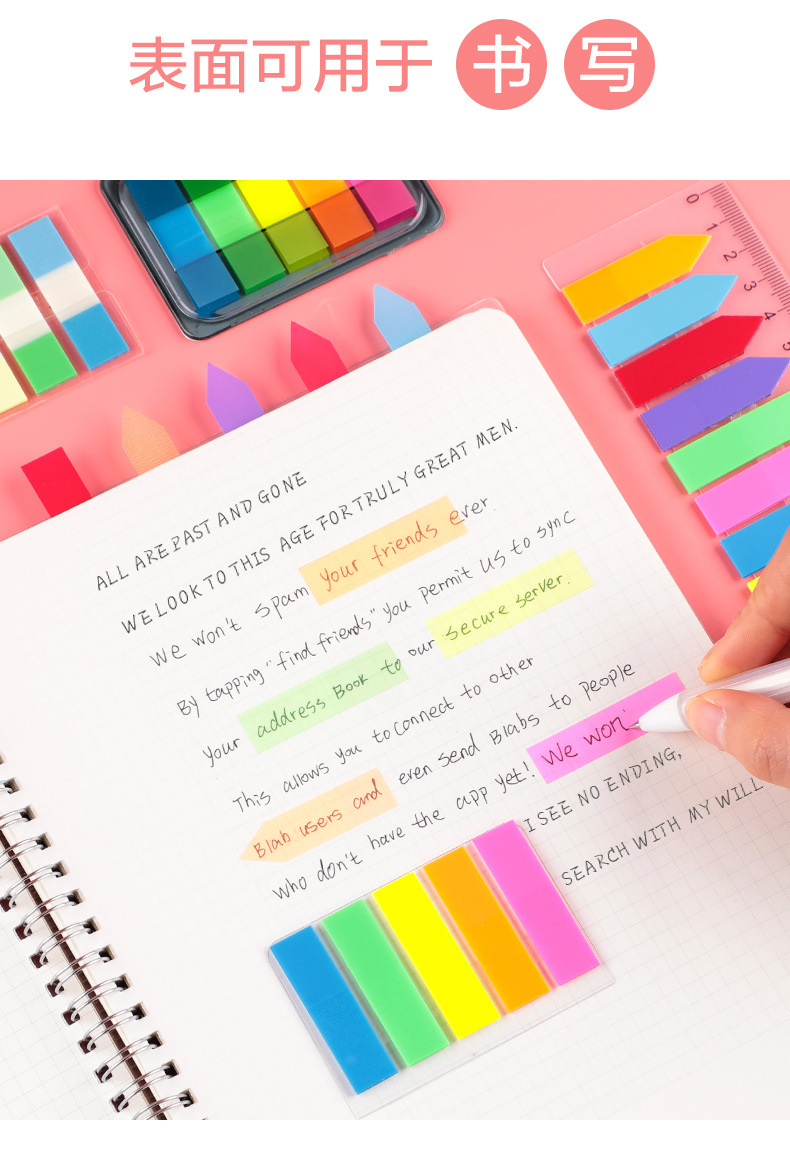 表面可用于 书写
0 1 2 3 4 5
ALL ARE PAST AND GONE
WE LOOK TO THIS AGE FOR TRULY GREAT MEN.
We won't spam your friends ever.
By tapping "find friends" you permit us to sync
your address Book to our secure server.
This allows you to connect to other
Blab users and even send Blabs to people
who don't have the app yet! We won
I SEE NO ENDING,
SEARCH WITH MY WILL